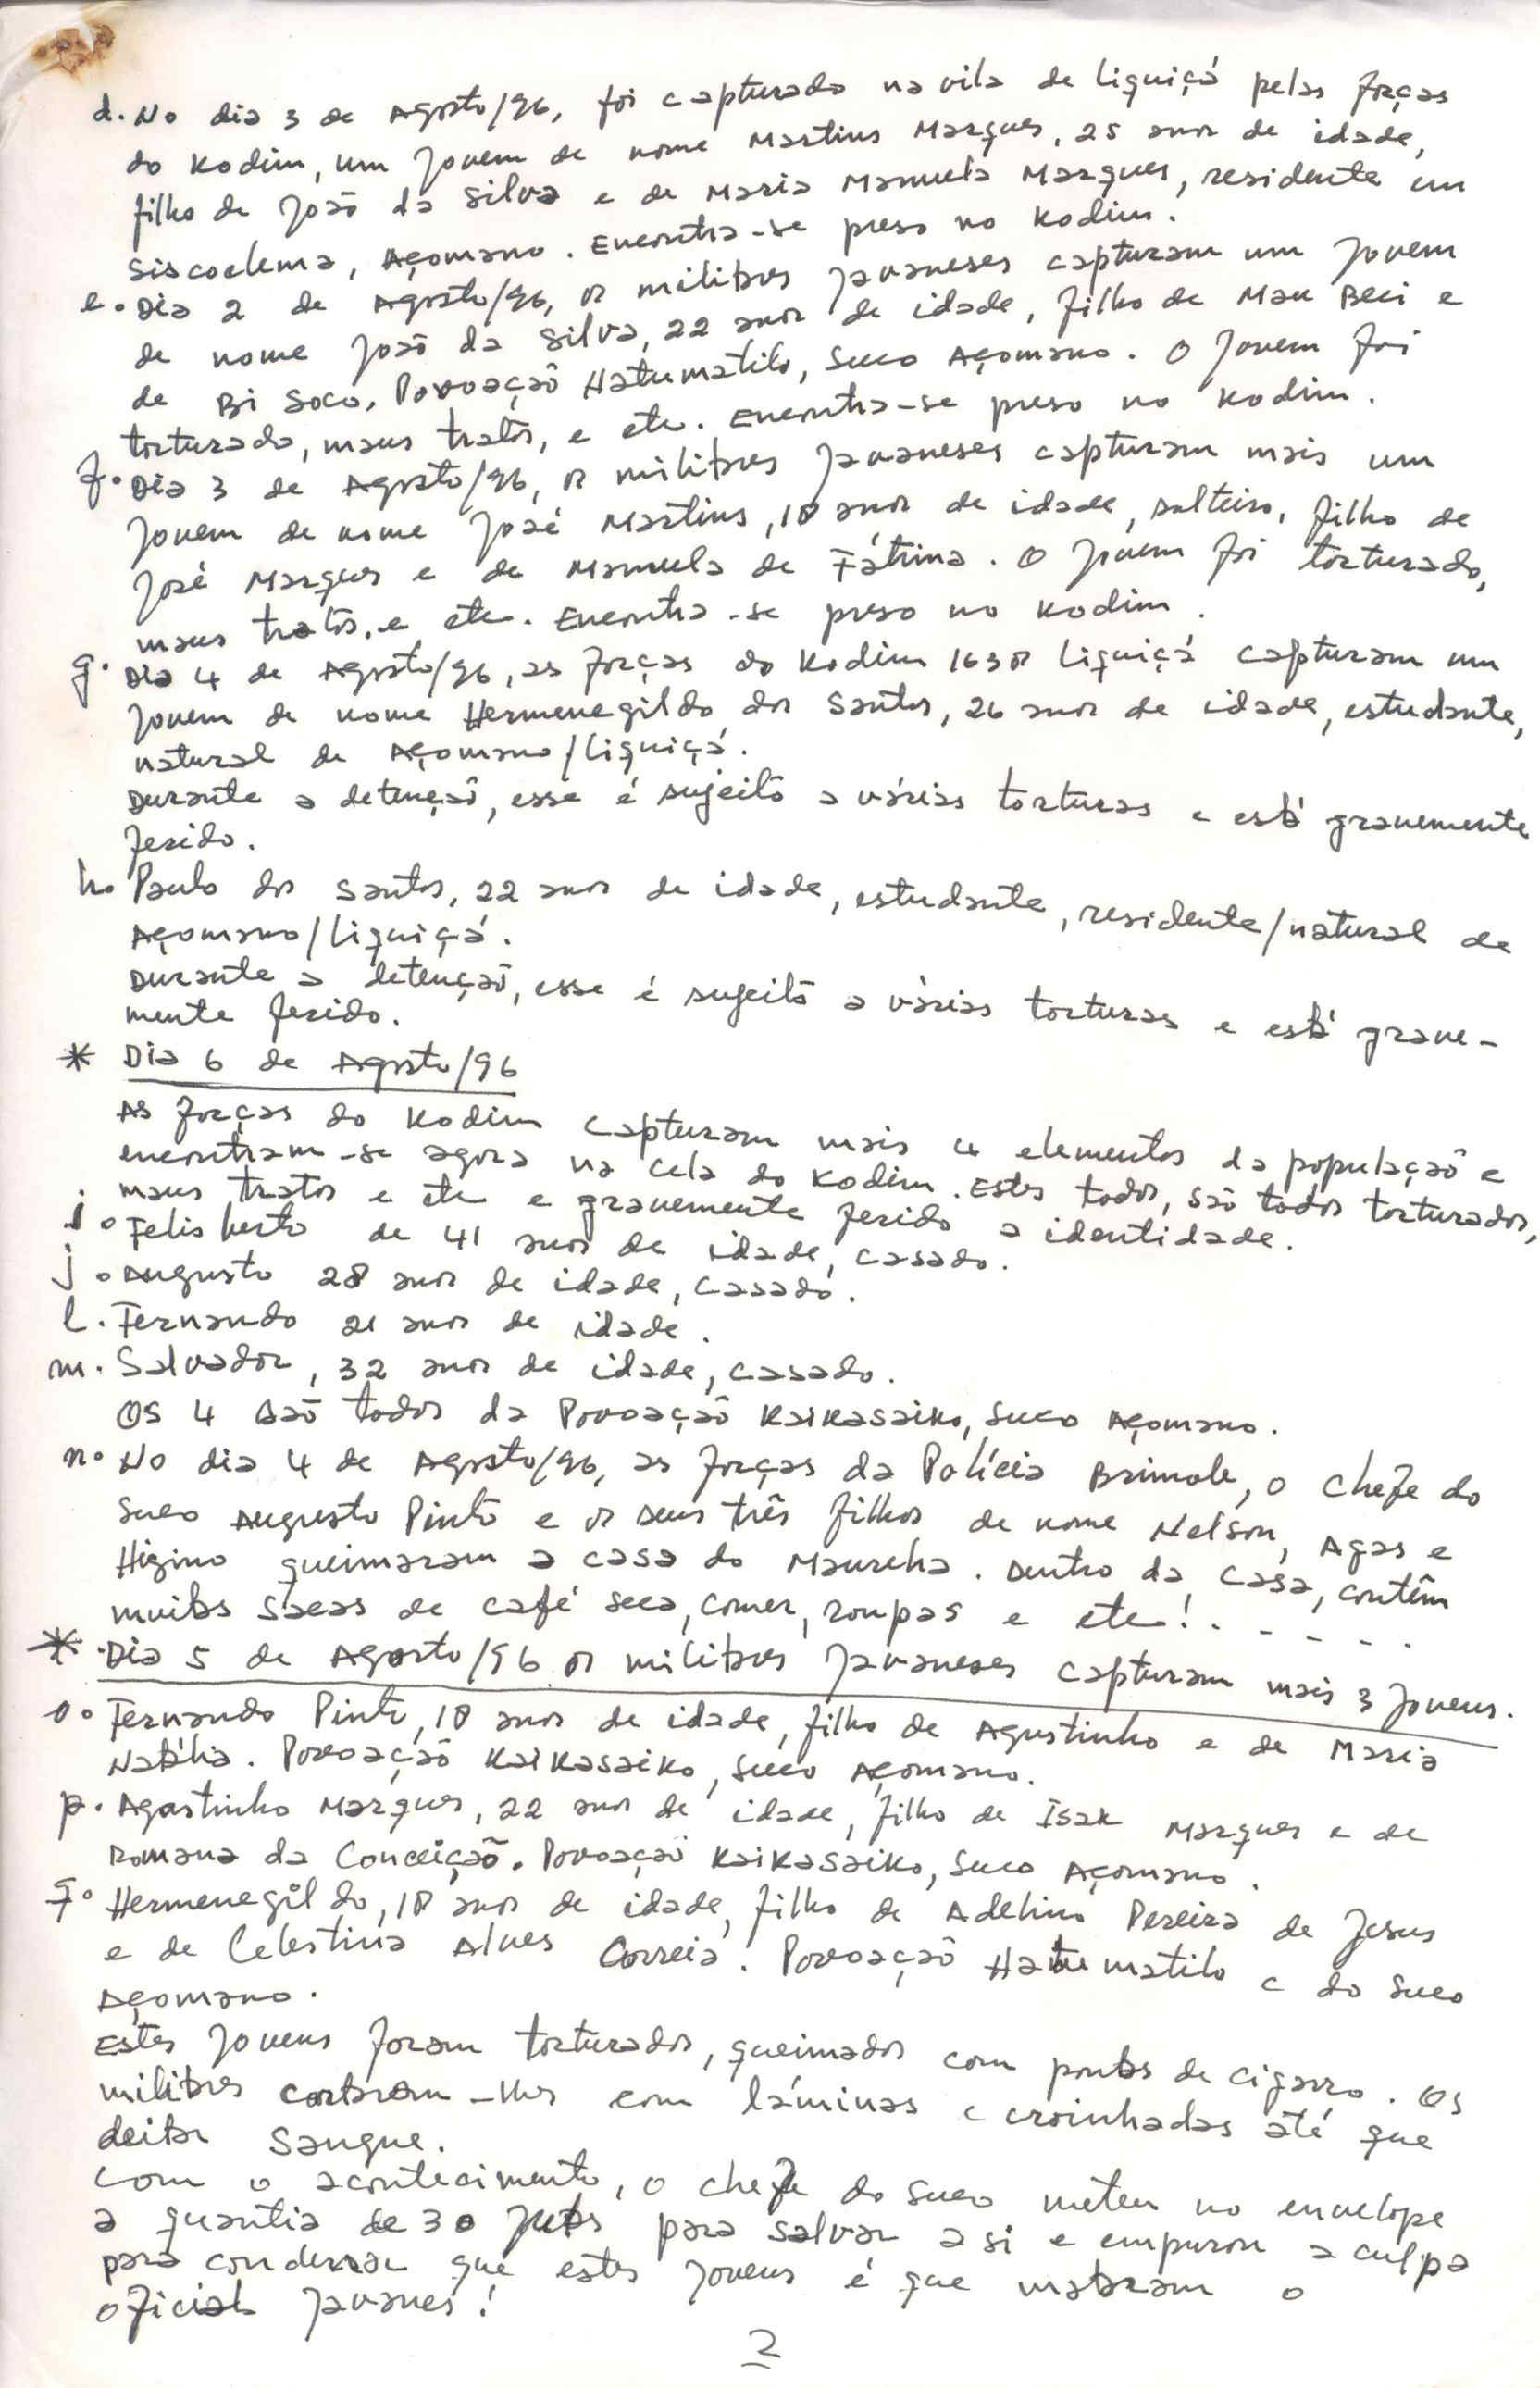 d. No dia 3 de Agosto/96, foi capturado na vila de Liquiçá pelas forças
do Kodim, um jovem de nome Martins Marques, 25 anos de idade,
filho de João da Silva e de Maria Manuela Marques, residente em
Siscoelema, Açomano. Encontra-se preso no Kodim.
e. Dia 2 de Agosto/96, os militares javaneses capturam um jovem
de nome João da Silva, 22 anos de idade, filho de Mau Beci e
de Bi Soco, Povoação Hatumatilo, Suco Açomano. O jovem foi
torturado, maus tratos, e etc. Encontra-se preso no Kodim.
f. Dia 3 de Agosto/96, os militares javaneses capturam mais um
jovem de nome José Martins, 18 anos de idade, solteiro, filho de
José Marques e de Manuela de Fátima. O jovem foi torturado,
maus tratos, e etc. Encontra-se preso no Kodim.
g. Dia 4 de Agosto/96, as forças do Kodim 1638 Liquiçá capturam um
jovem de nome Hermenegildo dos Santos, 26 anos de idade, estudante,
natural de Açomano/Liquiçá.
Durante a detenção, esse é sujeito a várias torturas e está gravemente
ferido.
h. Paulo dos Santos, 22 anos de idade, estudante, residente/natural de
Açomano/Liquiçá.
Durante a detenção, esse é sujeito a várias torturas e está grave-
mente ferido.
* Dia 6 de Agosto/96
As forças do Kodim capturam mais 4 elementos da população e
encontram-se agora na cela do Kodim. Estes todos, são todos torturados,
maus tratos e etc e gravemente ferido a identidade.
i. Felisberto de 41 anos de idade, casado.
j. Augusto 28 anos de idade, casado.
l. Fernando 21 anos de idade.
m. Salvador, 32 anos de idade, casado.
Os 4 são todos da Povoação Kaikasaiko, Suco Açomano.
n. No dia 4 de Agosto/96, as forças da Polícia Brimob, o chefe do
Suco Augusto Pinto e os seus três filhos de nome Nelson, Agas e
Higino queimaram a casa do Maureha. Dentro da casa, contêm
muitas sacas de café seca, comer, roupas e etc!. - - - - .
* . Dia 5 de Agosto/96 os militares javaneses capturam mais 3 jovens.
o. Fernando Pinto, 18 anos de idade, filho de Agustinho e de Maria
Natália. Povoação Kaikasaiko, Suco Açomano.
p. Agostinho Marques, 22 anos de idade, filho de Isak Marques e de
Romana da Conceição. Povoação Kaikasaiko, Suco Açomano.
q. Hermenegildo, 18 anos de idade, filho de Adelino Pereira de Jesus
e de Celestina Alves Correia. Povoação Hatumatilo e do Suco
Açomano.
Estes jovens foram torturados, queimados com pontas de cigarro. Os
militares cortaram-lhes com lâminas e croinhadas até que
deitar sangue.
Com o acontecimento, o chefe do Suco meteu no envelope
a quantia de 30 jutas para salvar a si e empurou a culpa
para condenar que estes jovens é que mataram o
oficial javanes!
2